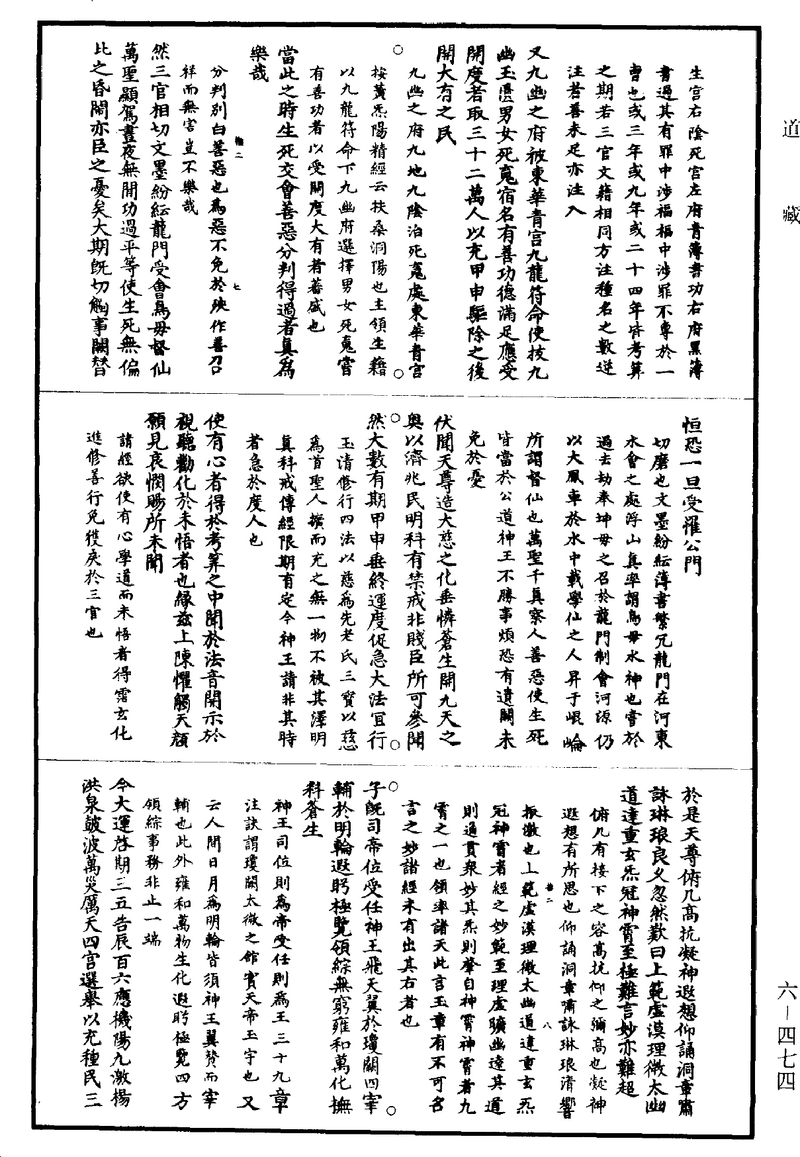 道藏
生宮右陰死宮左府青簿善功右府黑簿
書過其有罪中涉福福中涉罪不專於一
曹也或三年或九年或二十四年皆考算
之期若三官文籍相同方注種名之數逆
注若善未足亦注入
又九幽之府被東華青宮九龍符命使按九
幽玉匱男女死魂宿名有善功德滿足應受
開度者取三十二萬人以充甲申驅除之後
開大有之民
九幽之府九地九陰治死魂處東華青宮
按黃炁陽精經云扶桑洞陽也主領生籍
以九龍符命下九幽府選擇男女死魂嘗
有善功者以受開度大有者蕃盛也
當此之時生死交會善惡分判得過者真為
樂哉
分判別白善惡也為惡不免於殃作善召
祥而無害豈不樂哉
然三官相切文墨紛紜龍門受會鳥母督仙
萬聖顯駕晝夜無閒功過平等使生死無偏
比之昏閙亦臣之憂矣大期既切觸事闕替
恒恐一旦受罹公門
切磨也文墨紛紜簿書繁冗龍門在河東
水會之處浮山真率謂鳥母水神也嘗於
過去劫奉坤母之召於龍門制會河源仍
以大風車於水中載學仙之人昇于崐崘
所謂督仙也萬聖千真察人善惡使生死
皆當於公道神王不勝事煩恐有遺闕未
免於憂
伏聞天尊造大慈之化垂憐蒼生開九天之
奥以濟兆民明科有禁戒非賤臣所可參聞
然大數有期甲申垂終運度促急大法宜行
玉清修行四法以慈為先老氏三寳以慈
為首聖人擴而充之無一物不被其澤明
真科戒傳經限期有定今神王請非其時
者急於度人也
使有心者得於考算之中聞於法音開示於
視聽勸化於未悟者也緣兹上陳懼觸天顔
願見哀憫賜所未聞
請經欲使有心學道而未悟者得霑玄化
進修善行免獲戾於三官也
於是天尊俯几高抗凝神遐想仰誦洞章嘯
詠琳琅良久忽然歎曰上範虛漠理微太幽
道達重玄炁冠神霄至極難言妙亦難超
俯几有接下之容高抗仰之彌高也凝神
遐想有所思也仰誦洞章嘯詠琳琅清響
振徹也上範虛漠理微太幽道達重玄炁
冠神霄者經之妙範至理虛曠幽遠其道
則通貫衆妙其炁則肇自神霄神霄者九
霄之一也領率諸天此言玉章有不可名
言之妙諸經未有出其右者也
子旣司帝位受任神王飛天翼於瓊闕四宰
輔於明輪遐眄極覽領綜無窮雍和萬化撫
料蒼生
神王司位則為帝受任則為王三十九章
注訣謂瓊闕太微之館賓天帝玉宇也又
云人間日月為明輪皆須神王翼贊而宰
輔也此外雍和萬物生化遐眄極覽四方
領綜事務非止一端
今大運啓期三五告辰百六應機陽九激揚
洪泉皷波萬災厲天四宮選舉以充種民三
六－四七四